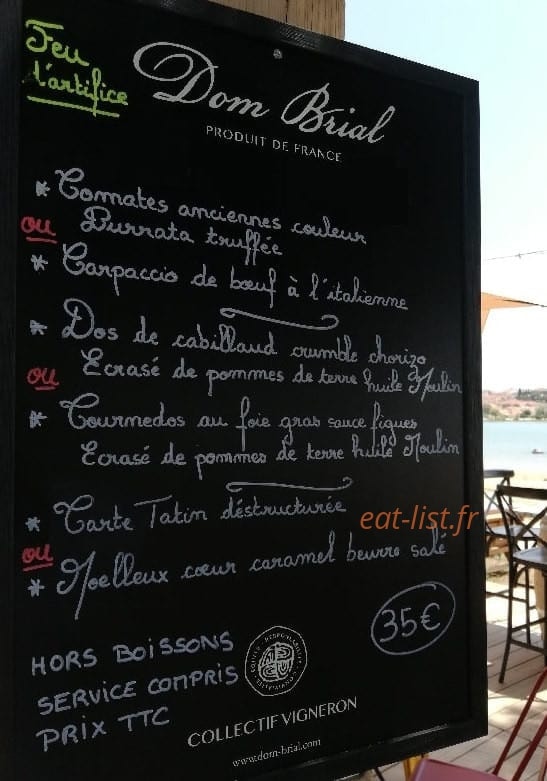 Feu
l'artifice
Dom Brial
PRODUIT DE FRANCE
* Tomates anciennes couleur
Burrata truffée
ou
* Carpaccio de bœuf à l'italienne
* Dos de cabillaud crumble chorizo
Ecrasé de pommes de terre huile Moulin
ou
* Tournedos au foie gras sauce figues
Ecrasé de pommes de terre huile Moulin
* Tarte Tatin déstructurée
eat-list.fr
ou
* Moelleux cœur caramel beurre salé
35€
HORS BOISSONS
SERVICE COMPRIS
PRIX TTC
COLLECTIF VIGNERON
www.dom-brial.com